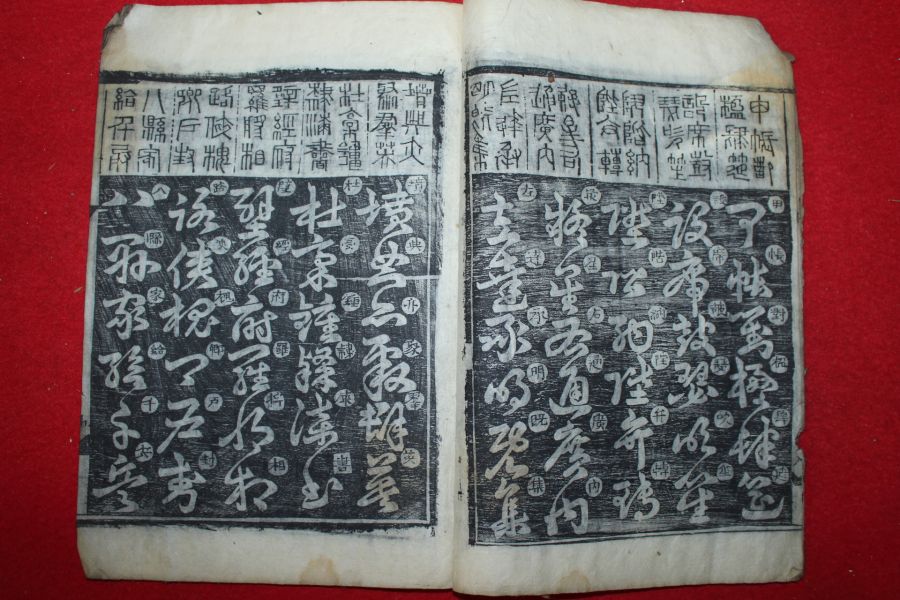 甲帳對
楹肆筵
設席鼓
瑟吹笙
陞階納
陛弁轉
疑星右
通廣內
左達承
明既集
甲帳對楹肆筵
設席鼓瑟吹笙
陞階納陛弁轉
疑星右通廣內
左達承明既集
墳典亦
聚群英
杜稾鍾
隸漆書
壁經府
羅將相
路俠槐
卿戶封
八縣家
給千兵
墳典亦聚群英
杜稾鍾隸漆書
壁經府羅將相
路俠槐卿戶封
八縣家給千兵